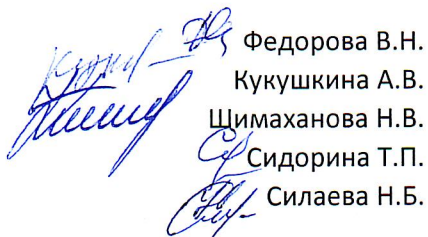 Федорова В.Н.
Кукушкина А.В.
Шимаханова Н.В.
Сидорина Т.П.
Силаева Н.Б.